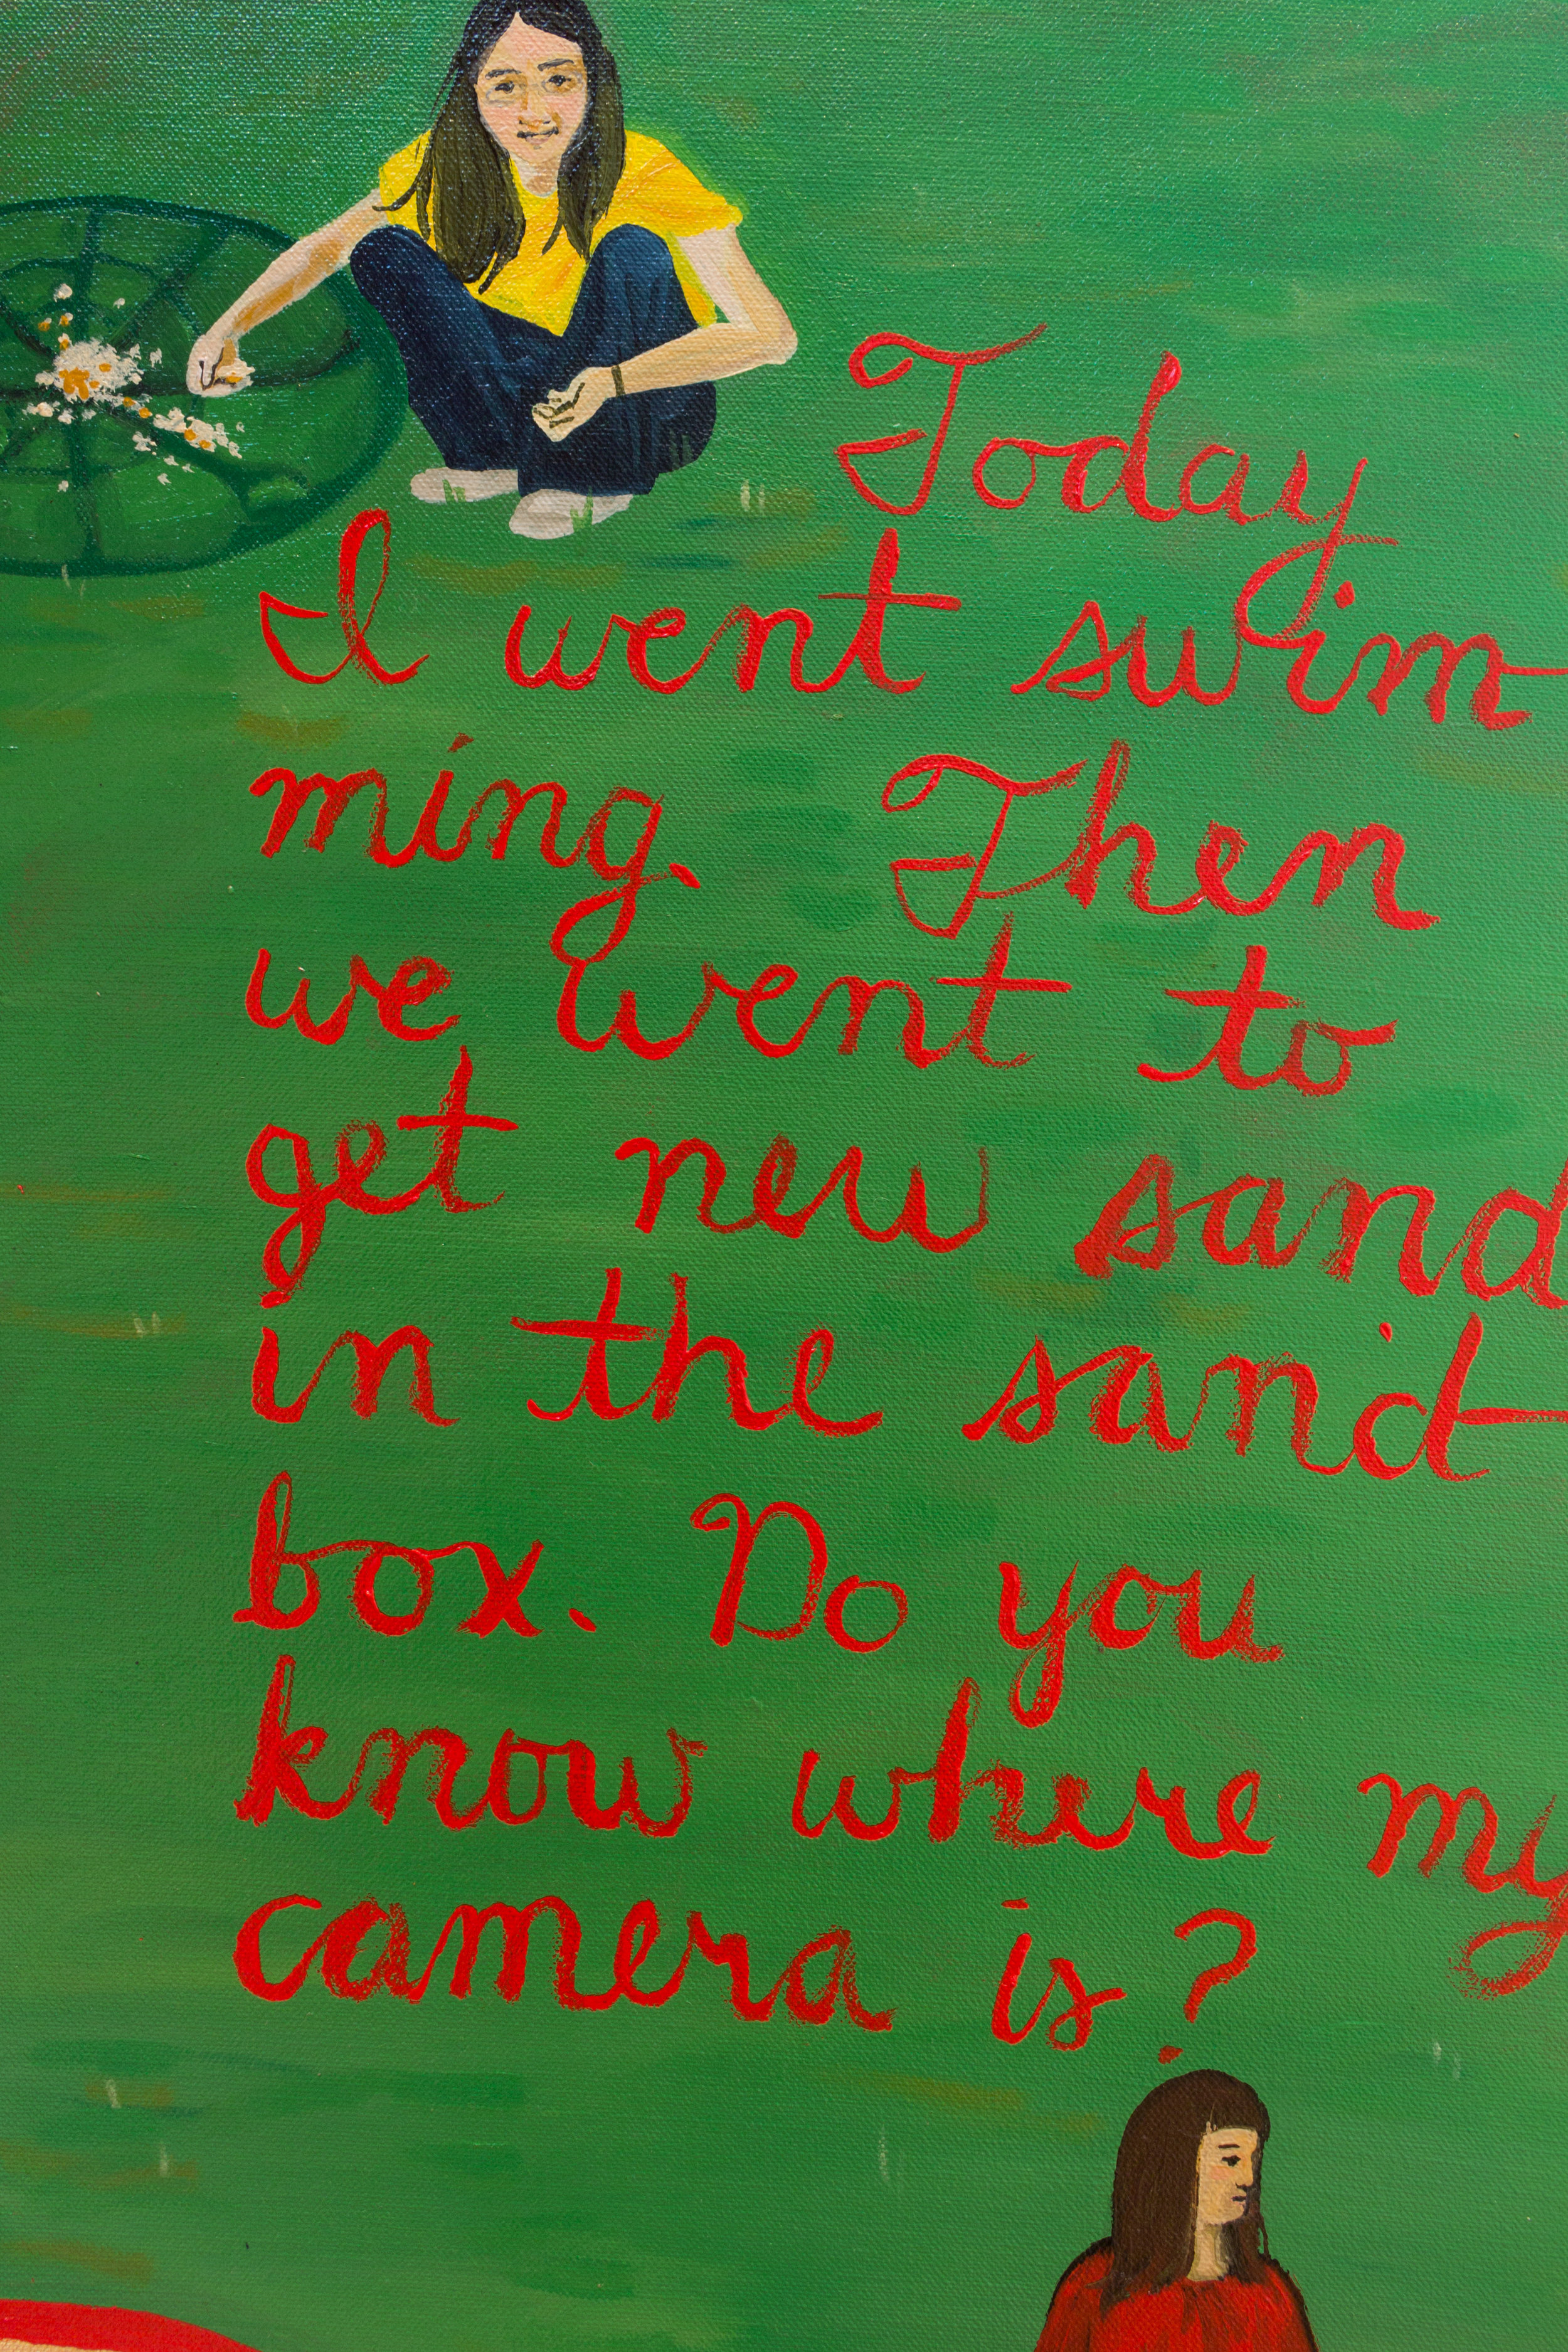 Today
I went swim-
ming. Then
we went to
get new sand
in the sand-
box. Do you
know where my
camera is?